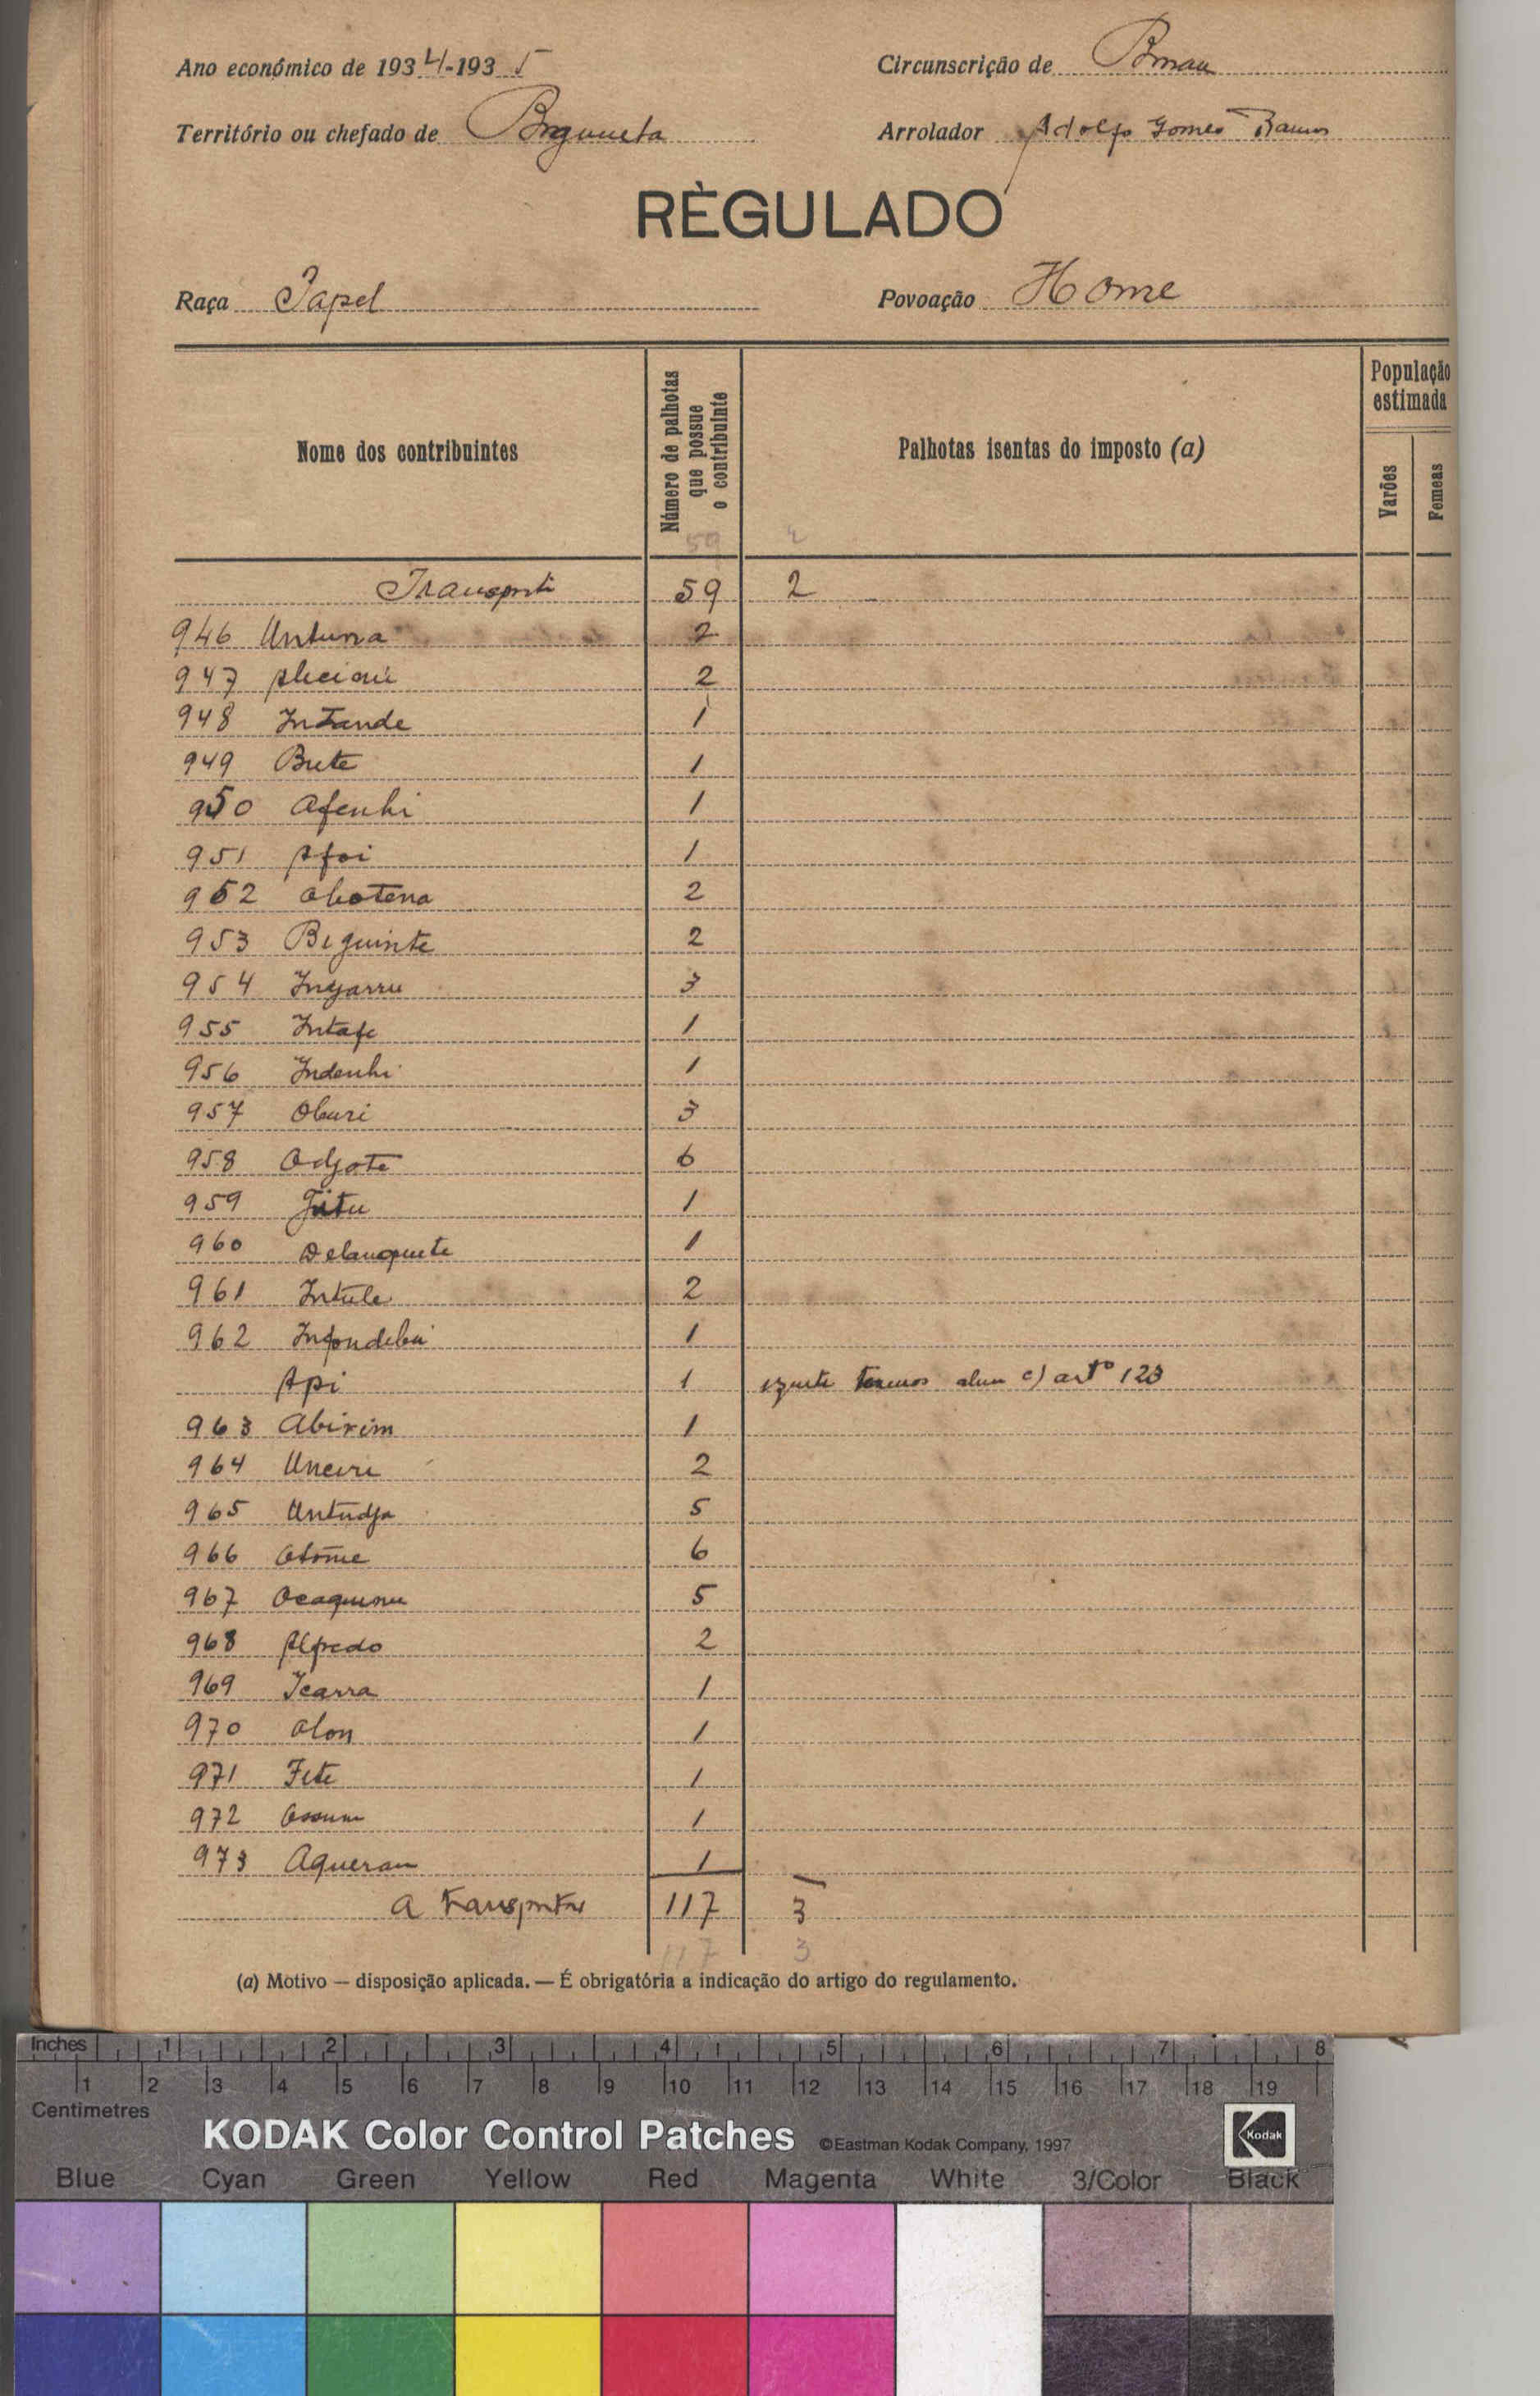 Ano económico de 1934-1935 Circunscrição de
Território ou chefado de Arrolador Adolfo Gomes Ramos
RÈGULADO
Raça Papel Povoação Home
Nome dos contribuintes Número de palhotas que possue o contribuinte Palhotas isentas do imposto (a) População estimada Varões Femeas
59 2
Transporte 59 2
946 Untuna 2
947 2
948 Intande 1
949 Bute 1
950 Afenhi 1
951 Afoi 1
952 2
953 Biguinte 2
954 Ingarru 3
955 Intafe 1
956 Indenhi 1
957 3
958 Odjote 6
959 1
960 Delanquete 1
961 Intule 2
962 1
Api 1 c) artº 123
963 Abirim 1
964 2
965 Untudja 5
966 6
967 5
968 Alfredo 2
969 Icarra 1
970 Olon 1
971 Fete 1
972 1
973 Aqueran 1
A transportar 117 3
117 3
(a) Motivo — disposição aplicada. — É obrigatória a indicação do artigo do regulamento.
Inches 1 2 3 4 5 6 7 8
1 2 3 4 5 6 7 8 9 10 11 12 13 14 15 16 17 18 19
Centimetres
KODAK Color Control Patches ©Eastman Kodak Company, 1997 Kodak
Blue Cyan Green Yellow Red Magenta White 3/Color Black